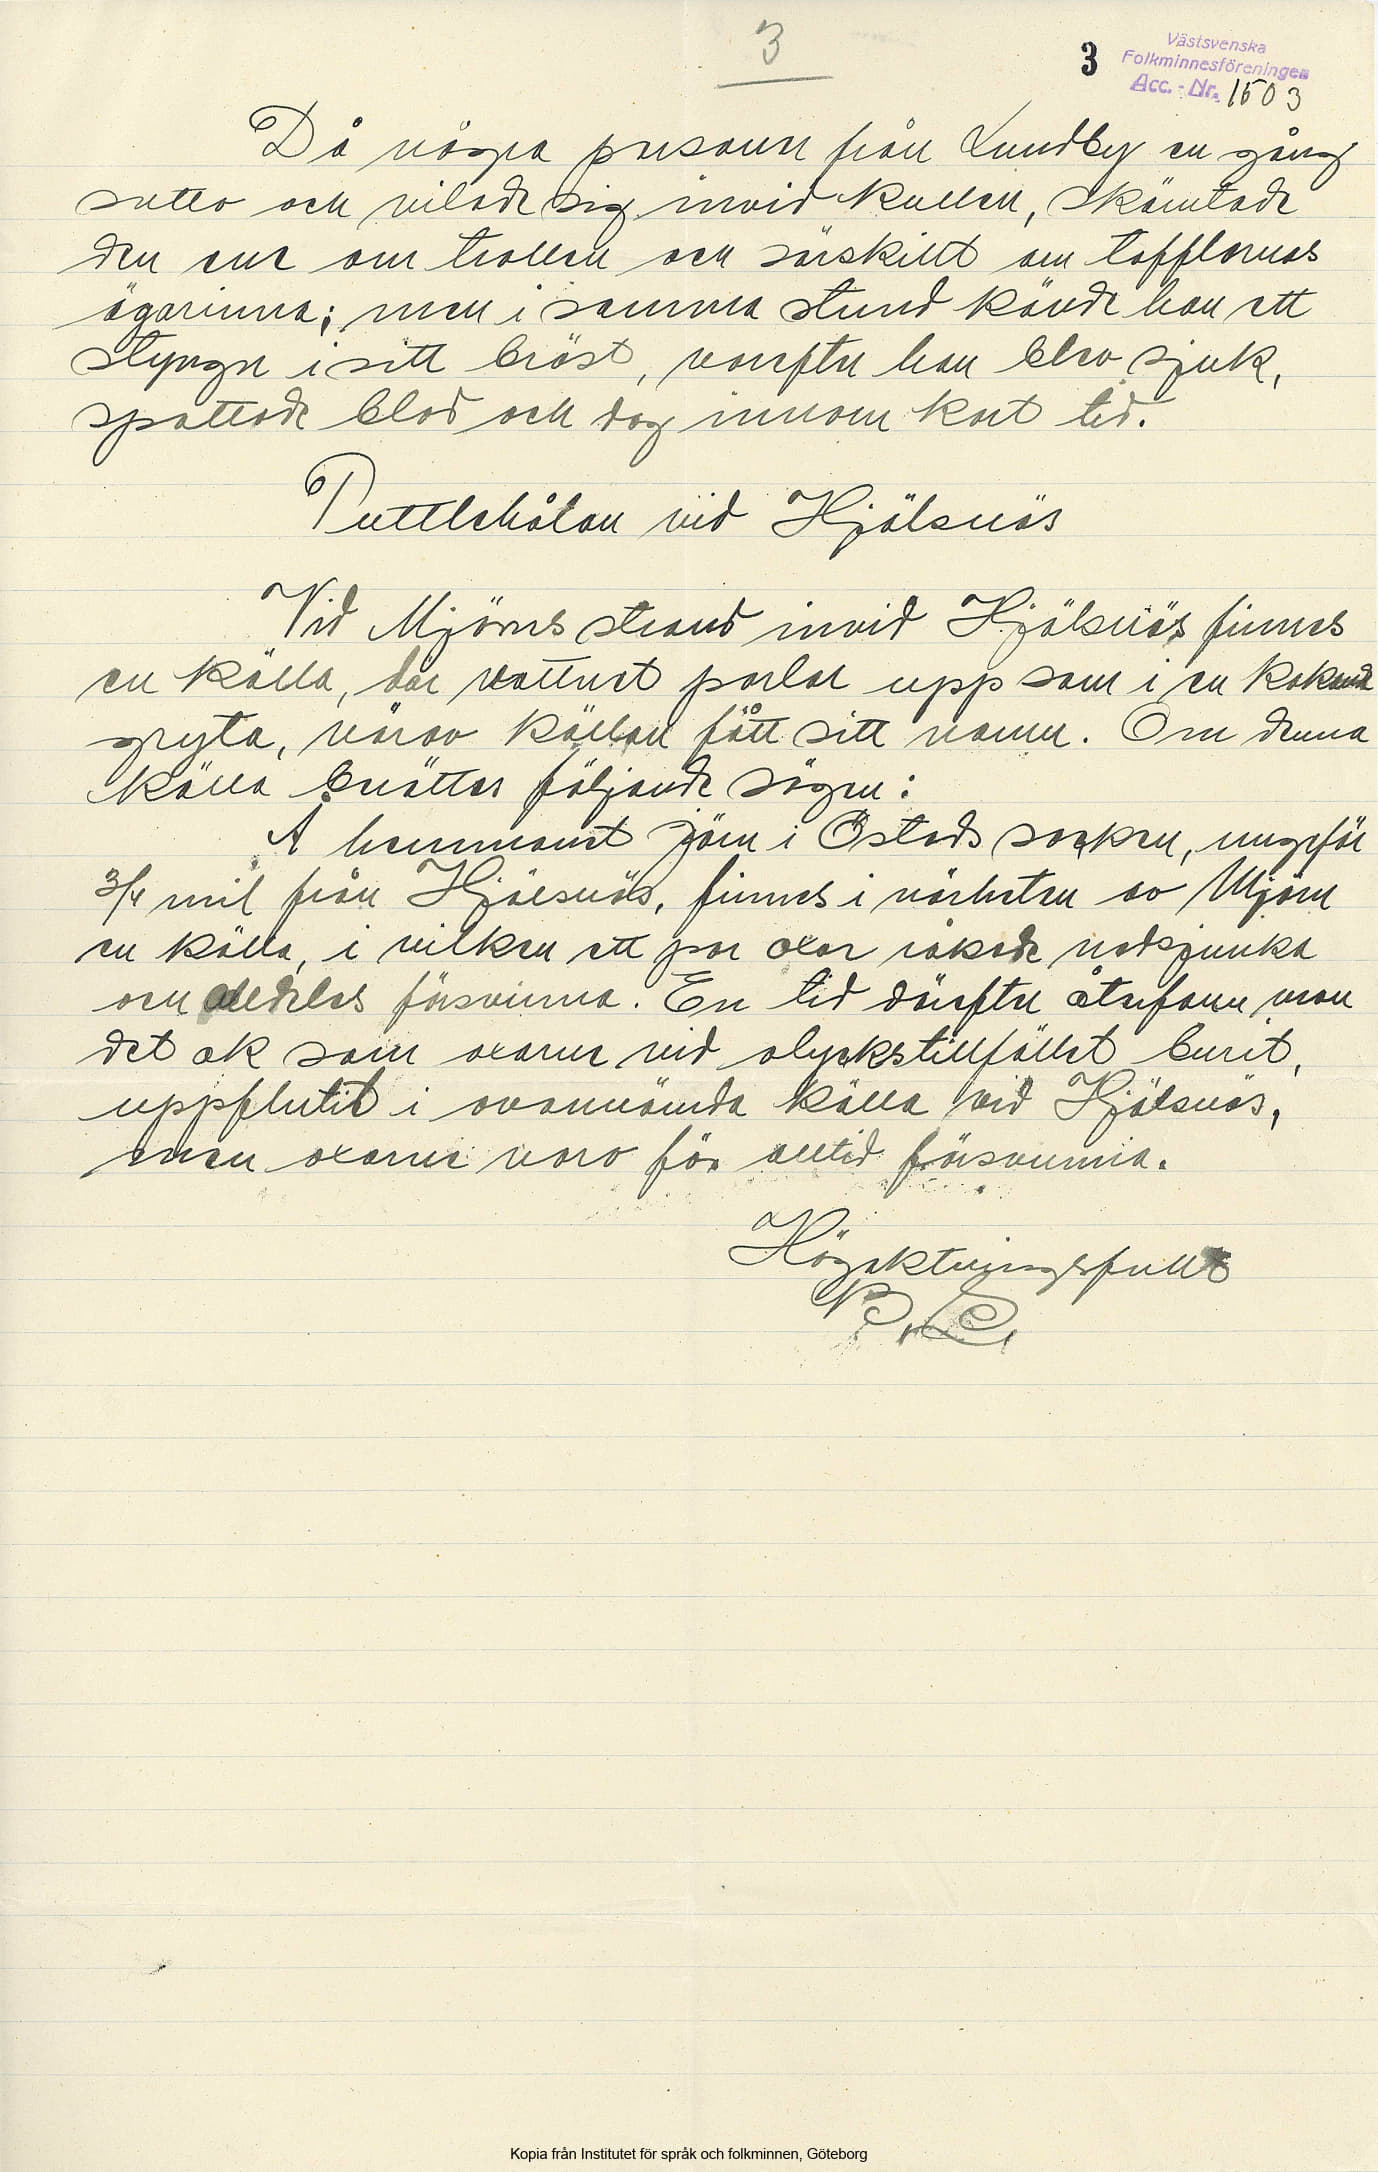 3
3
Västsvenska
Folkminnesföreningen
Acc.-Nr. 1503
Då några personer från Lundby en gång
sutto och vilade sig invid kullen, skämtade
den ene om trollen och särskilt om tofflornas
ägarinna; men i samma stund kände han ett
styngn i sitt bröst, varefter han blev sjuk,
spottade blod och dog innom kort tid.
Puttlehålan vid Hjälsnäs
Vid Mjörns strand invid Hjälsnäs finnes
en källa, där vattnet porlar upp som i en kokande
gryta, varav källan fått sitt namn. Om denna
källa berättas följande sägen:
Å hemmanet Jörn i Östads socken, ungefär
3/4 mil från Hjälsnäs, finnes i närheten av Mjörn
en källa, i vilken ett par oxar råkade nedsjunka
och alldeles försvinna. En tid därefter återfann man
det ok som oxarne vid olyckstillfället burit,
uppflutit i ovannämda källa vid Hjälsnäs,
men oxarne voro för alltid försvunna.
Högaktningsfullt
Kopia från Institutet för språk och folkminnen, Göteborg